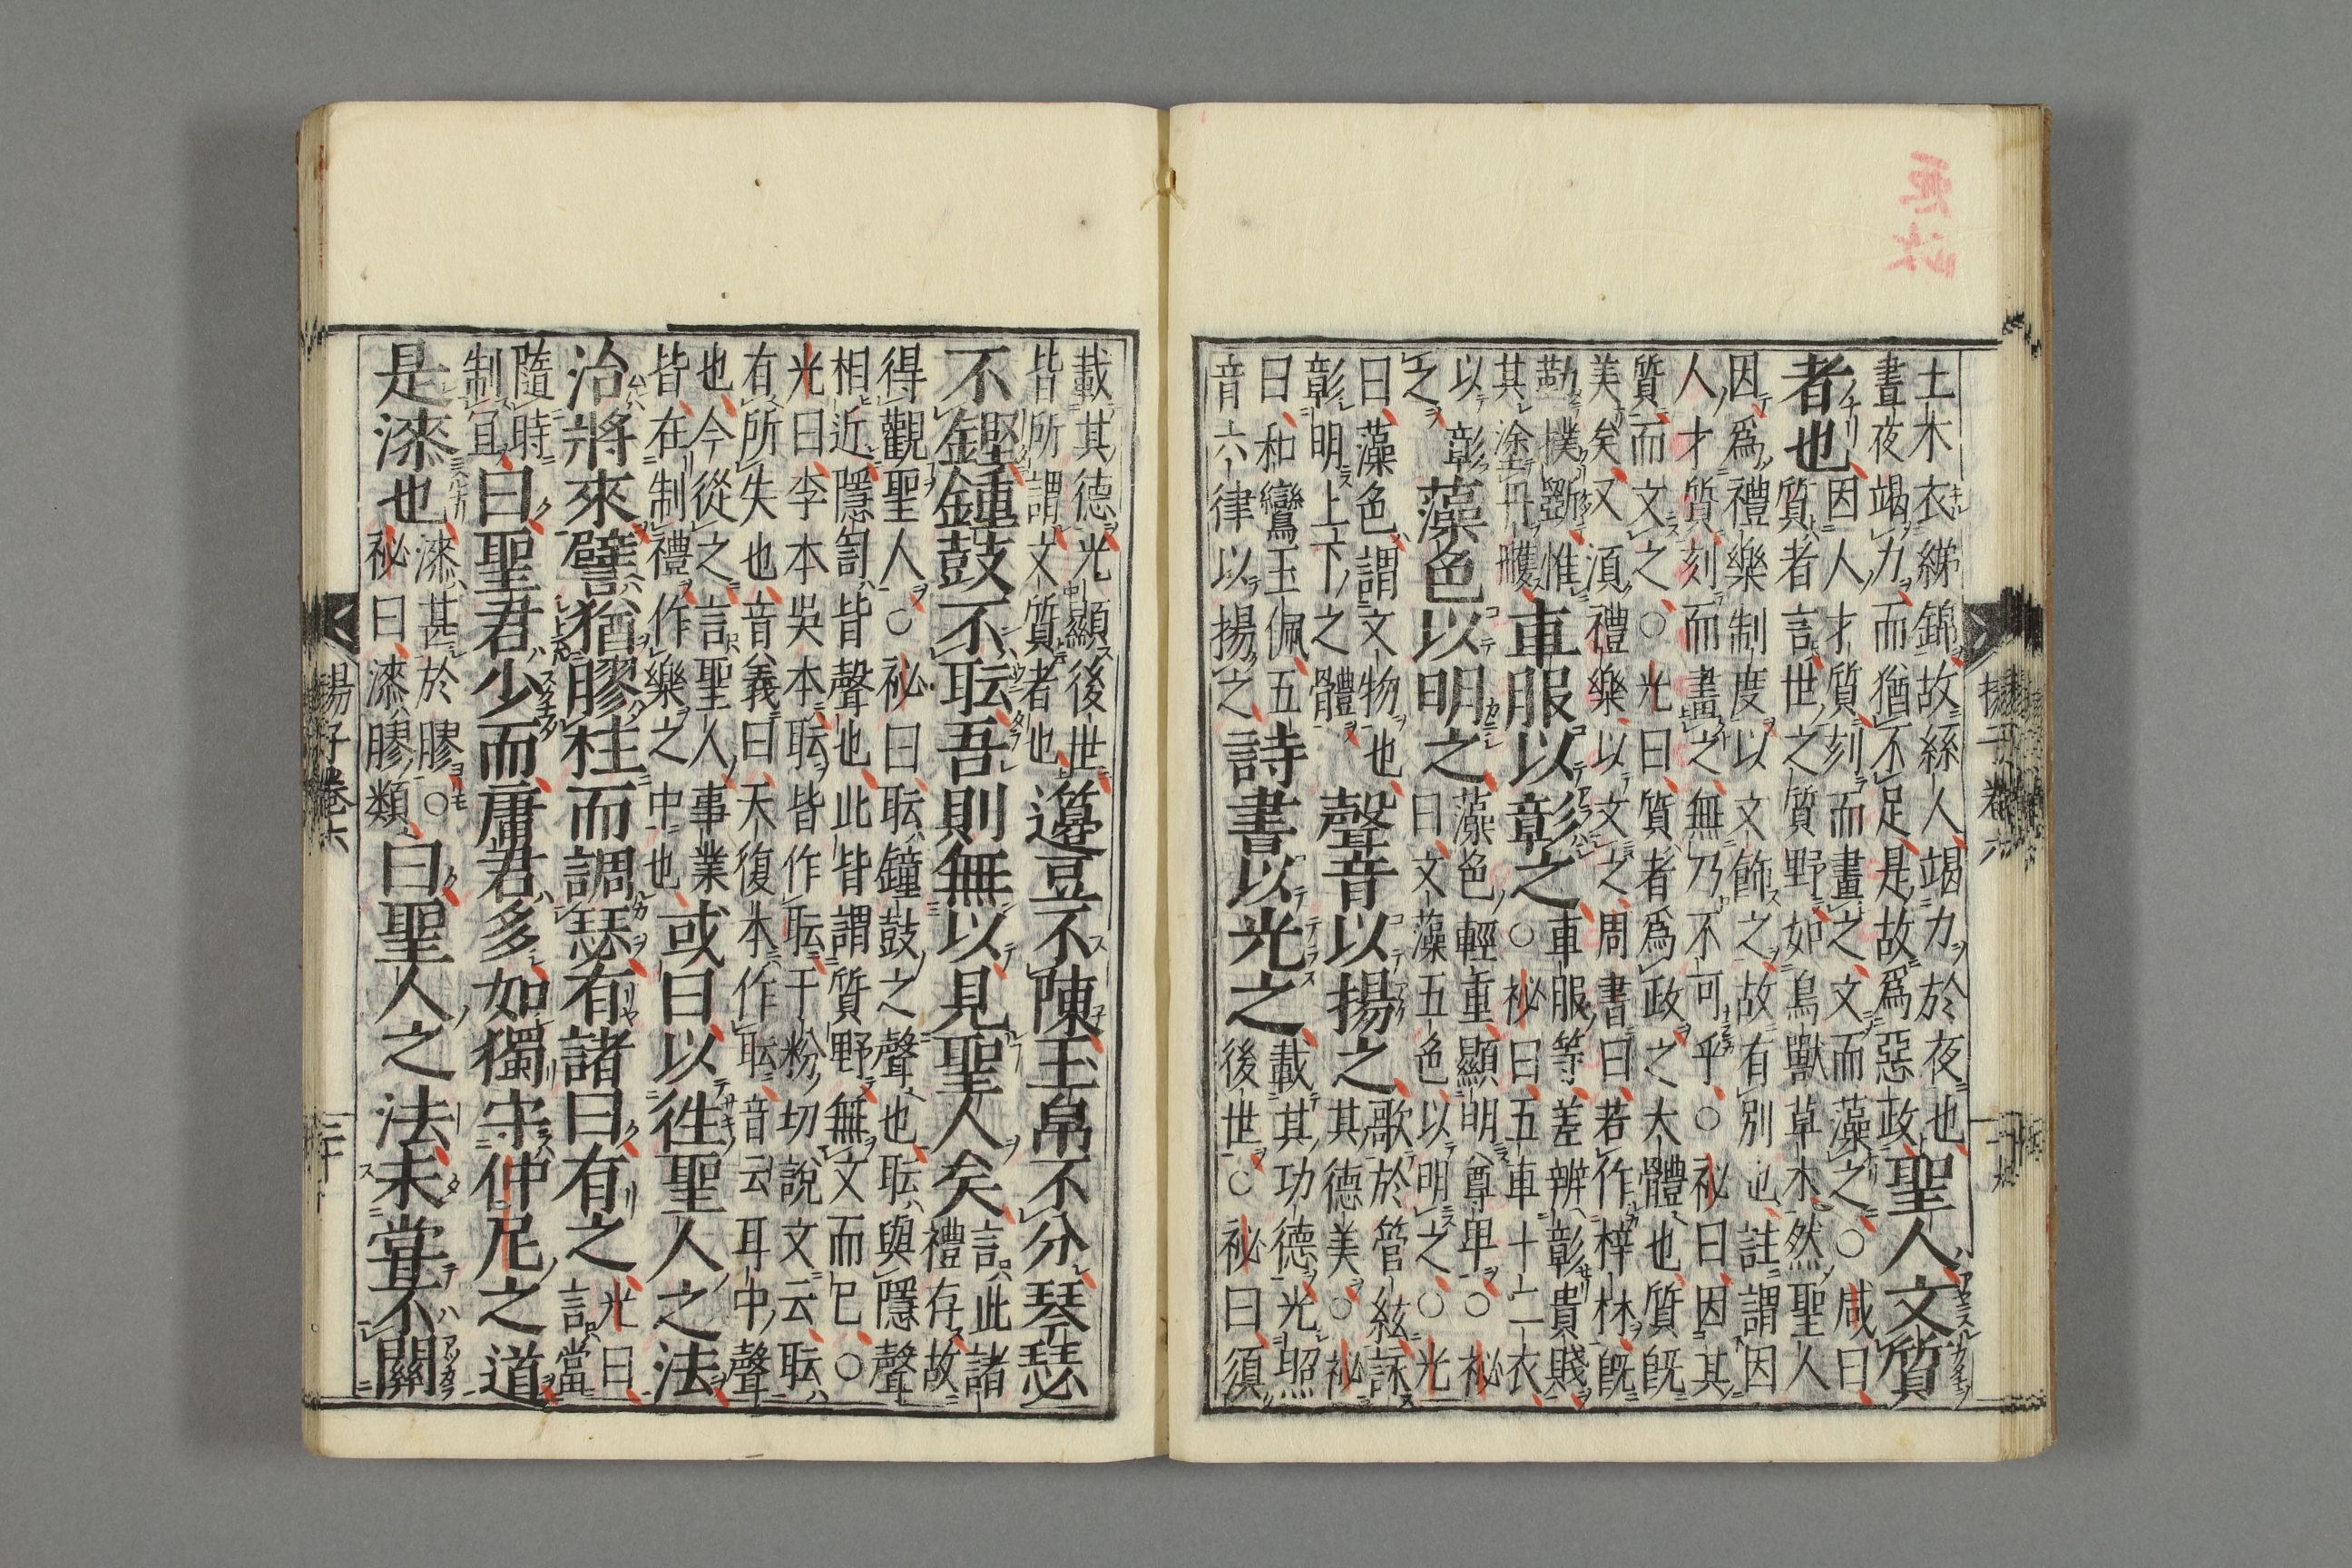 土木衣綈錦故絲人竭力於夜也
晝夜竭力而猶不足是故爲惡政
聖人文質
者也
因人才質刻而畫之文而藻之○咸曰
質者言世之質野如鳥獸草木然聖人
因爲禮樂制度以文飾之故有別也註謂因
人才質刻而畫之無乃不可乎○祕曰因其
質而文之○光曰質者爲政之大體也質旣
美矣又湏禮樂以文之周書曰若作梓材旣
勤樸斵惟
其塗丹雘
車服以彰之
車服等差辨彰貴賤
○祕曰五車十二衣
以彰
之
藻色以明之
藻色輕重顯明尊卑○祕
曰文藻五色以明之○光
曰藻色謂文物也
彰明上下之體
聲音以揚之
歌於管絃詠
其德美○祕
曰和鸞玉佩五
音六律以揚之
詩書以光之
載其功德光照
後世○祕曰須
載其德光顯後世
皆所謂文質者也
籩豆不陳玉帛不分琴瑟
不鏗鍾鼓不耺吾則無以見聖人矣
言此諸
禮存故
得觀聖人○祕曰耺鐘鼓之聲也耺與隱聲
相近隱訇皆聲也此皆謂質野無文而已○
光曰李本吳本耺皆作耺于粉切說文云耺
有所失也音義曰天復本作耺音云耳中聲
也今從之言聖人事業
皆在制禮作樂之中也
或曰以徃聖人之法
治將來譬猶膠柱而調瑟有諸曰有之
光曰
言當
隨時
制宜
曰聖君少而庸君多如獨守仲尼之道
是漆也
漆甚於膠○
祕曰漆膠類
曰聖人之法未甞不關
揚子卷六
二十